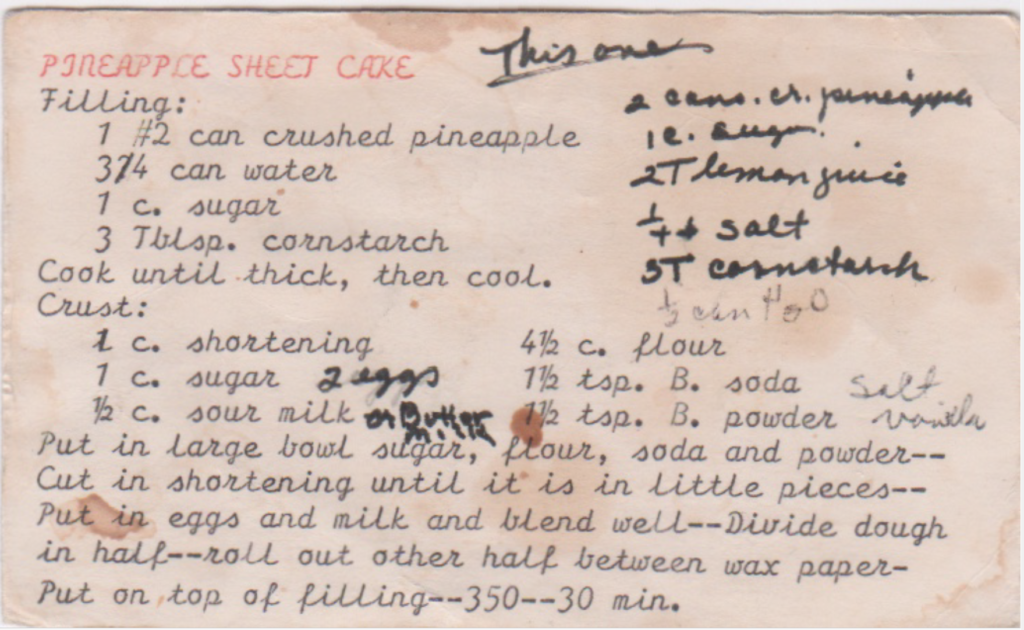 This one
PINEAPPLE SHEET CAKE
Filling:
1 #2 can crushed pineapple
3/4 can water
1 c. sugar
3 Tblsp. cornstarch
Cook until thick, then cool.
2 cans. cr. pineapple
1 c. sugar.
2T lemon juice
1/4 t salt
3T cornstarch
can H2O
Crust:
1 c. shortening
1 c. sugar 2 eggs
½ c. sour milk or Butter milk
4½ c. flour
1½ tsp. B. soda
1½ tsp. B. powder
salt
vanilla
Put in large bowl sugar, flour, soda and powder--
Cut in shortening until it is in little pieces--
Put in eggs and milk and blend well--Divide dough
in half--roll out other half between wax paper-
Put on top of filling--350--30 min.